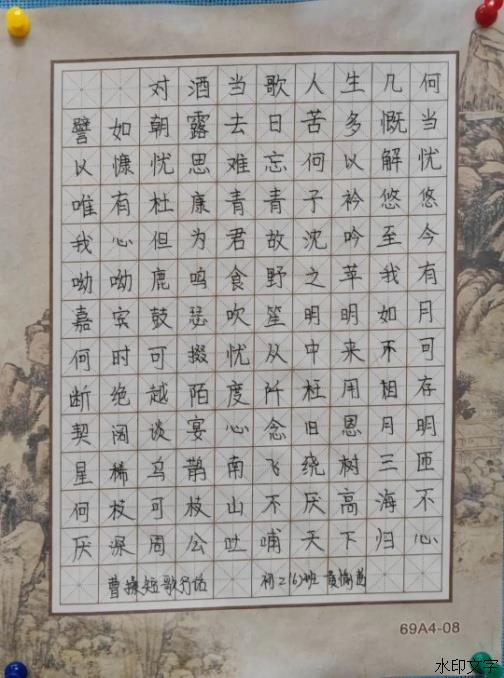 对酒当歌人生几何
譬如朝露去日苦多慨当
以慷忧思难忘何以解忧
唯有杜康青青子衿悠悠
我心但为君故沈吟至今
呦呦鹿鸣食野之苹我有
嘉宾鼓瑟吹笙明明如月
何时可掇忧从中来不可
断绝越陌度阡枉用相存
契阔谈宴心念旧恩月明
星稀乌鹊南飞绕树三匝
何枝可枝山不厌高海不
厌深周公吐哺天下归心
曹操短歌行 初2(6)班
69A4-08
水印文字